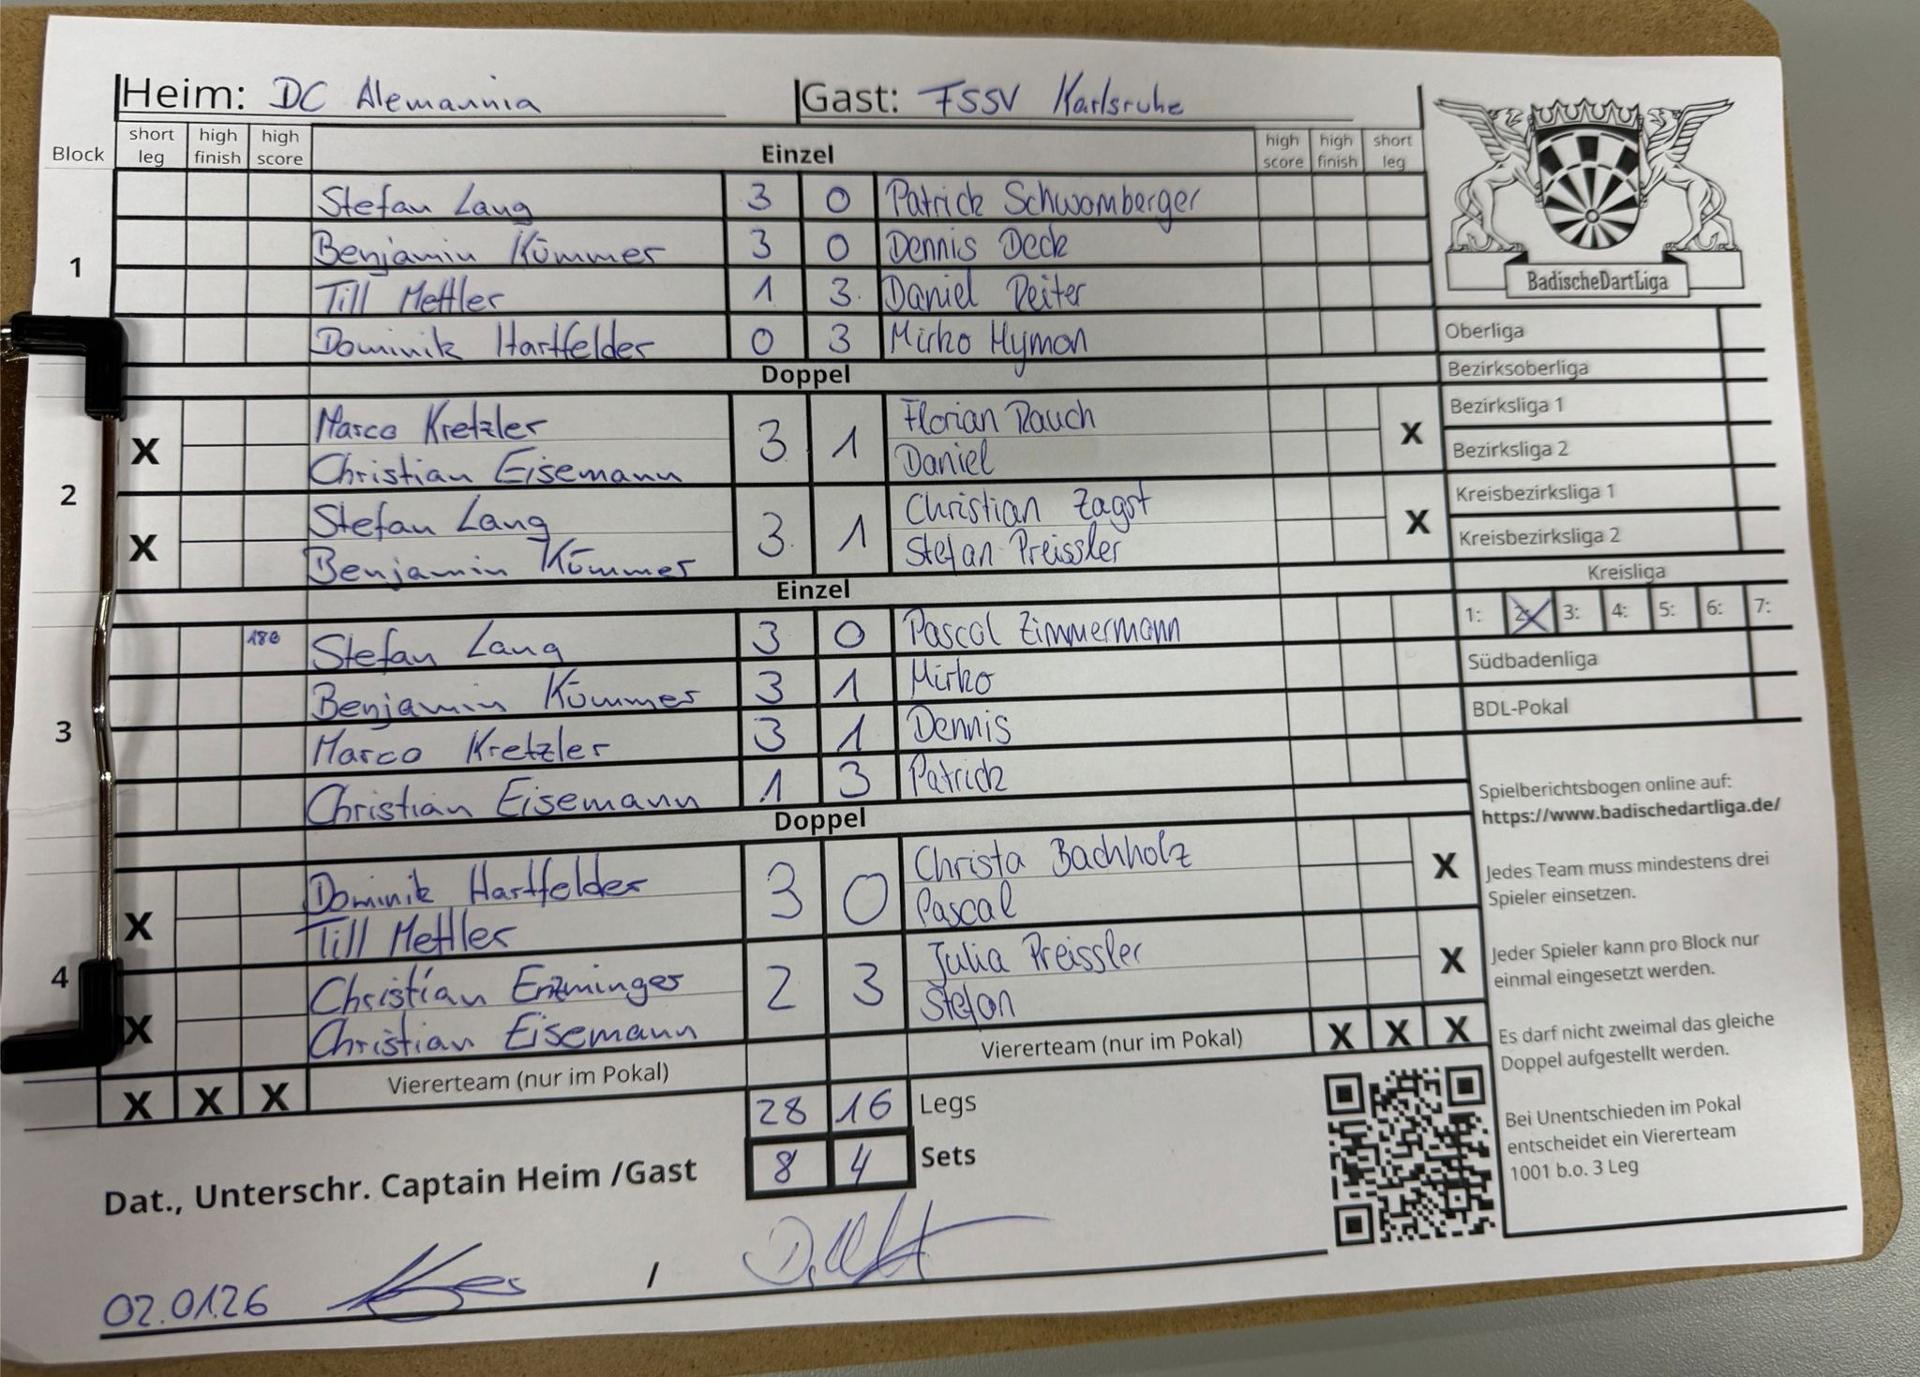 Heim: DC Alemannia Gast: FSSV Karlsruhe
Block short leg high finish high score Einzel high score high finish short leg
1
Stefan Lang 3 0 Patrick Schwomberger
Benjamin Kümmer 3 0 Dennis Deck
Till Mettler 1 3 Daniel Reiter
Dominik Hartfelder 0 3 Mirko Hymon
Doppel
2
X Marco Kretzler 3 1 Florian Rauch X
Christian Eisemann Daniel
X Stefan Lang 3 1 Christian Zagst X
Benjamin Kümmer Stefan Preissler
Einzel
3
180 Stefan Lang 3 0 Pascal Zimmermann
Benjamin Kümmer 3 1 Mirko
Marco Kretzler 3 1 Dennis
Christian Eisemann 1 3 Patrick
Doppel
4
X Dominik Hartfelder 3 0 Christa Bachholz X
Till Mettler Pascal
X Christian Erzminger 2 3 Julia Preissler X
Christian Eisemann Stefan
X X X Viererteam (nur im Pokal) Viererteam (nur im Pokal) X X X
28 16 Legs
8 4 Sets
Dat., Unterschr. Captain Heim /Gast
02.01.26 /
BadischeDartLiga
Oberliga
Bezirksoberliga
Bezirksliga 1
Bezirksliga 2
Kreisbezirksliga 1
Kreisbezirksliga 2
Kreisliga
1: 2: 3: 4: 5: 6: 7:
Südbadenliga
BDL-Pokal
Spielberichtsbogen online auf:
https://www.badischedartliga.de/
Jedes Team muss mindestens drei
Spieler einsetzen.
Jeder Spieler kann pro Block nur
einmal eingesetzt werden.
Es darf nicht zweimal das gleiche
Doppel aufgestellt werden.
Bei Unentschieden im Pokal
entscheidet ein Viererteam
1001 b.o. 3 Leg